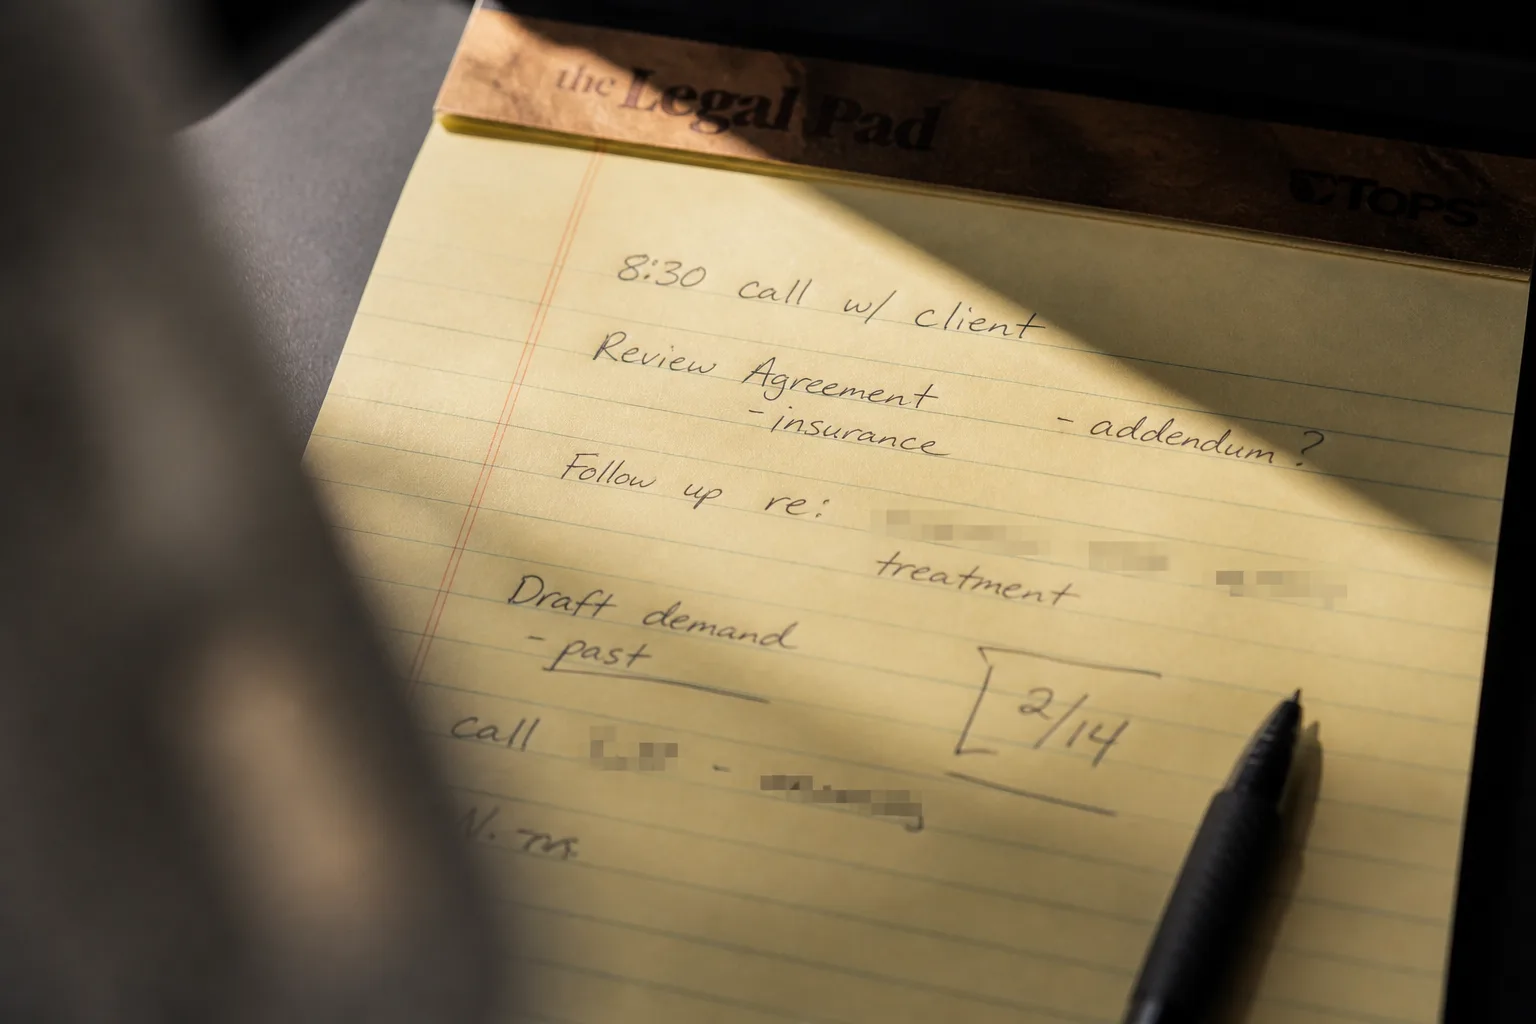 the Legal Pad
TOPS
8:30 call w/ client
Review Agreement - addendum?
- insurance
Follow up re:
treatment
Draft demand
- past
2/14
call -